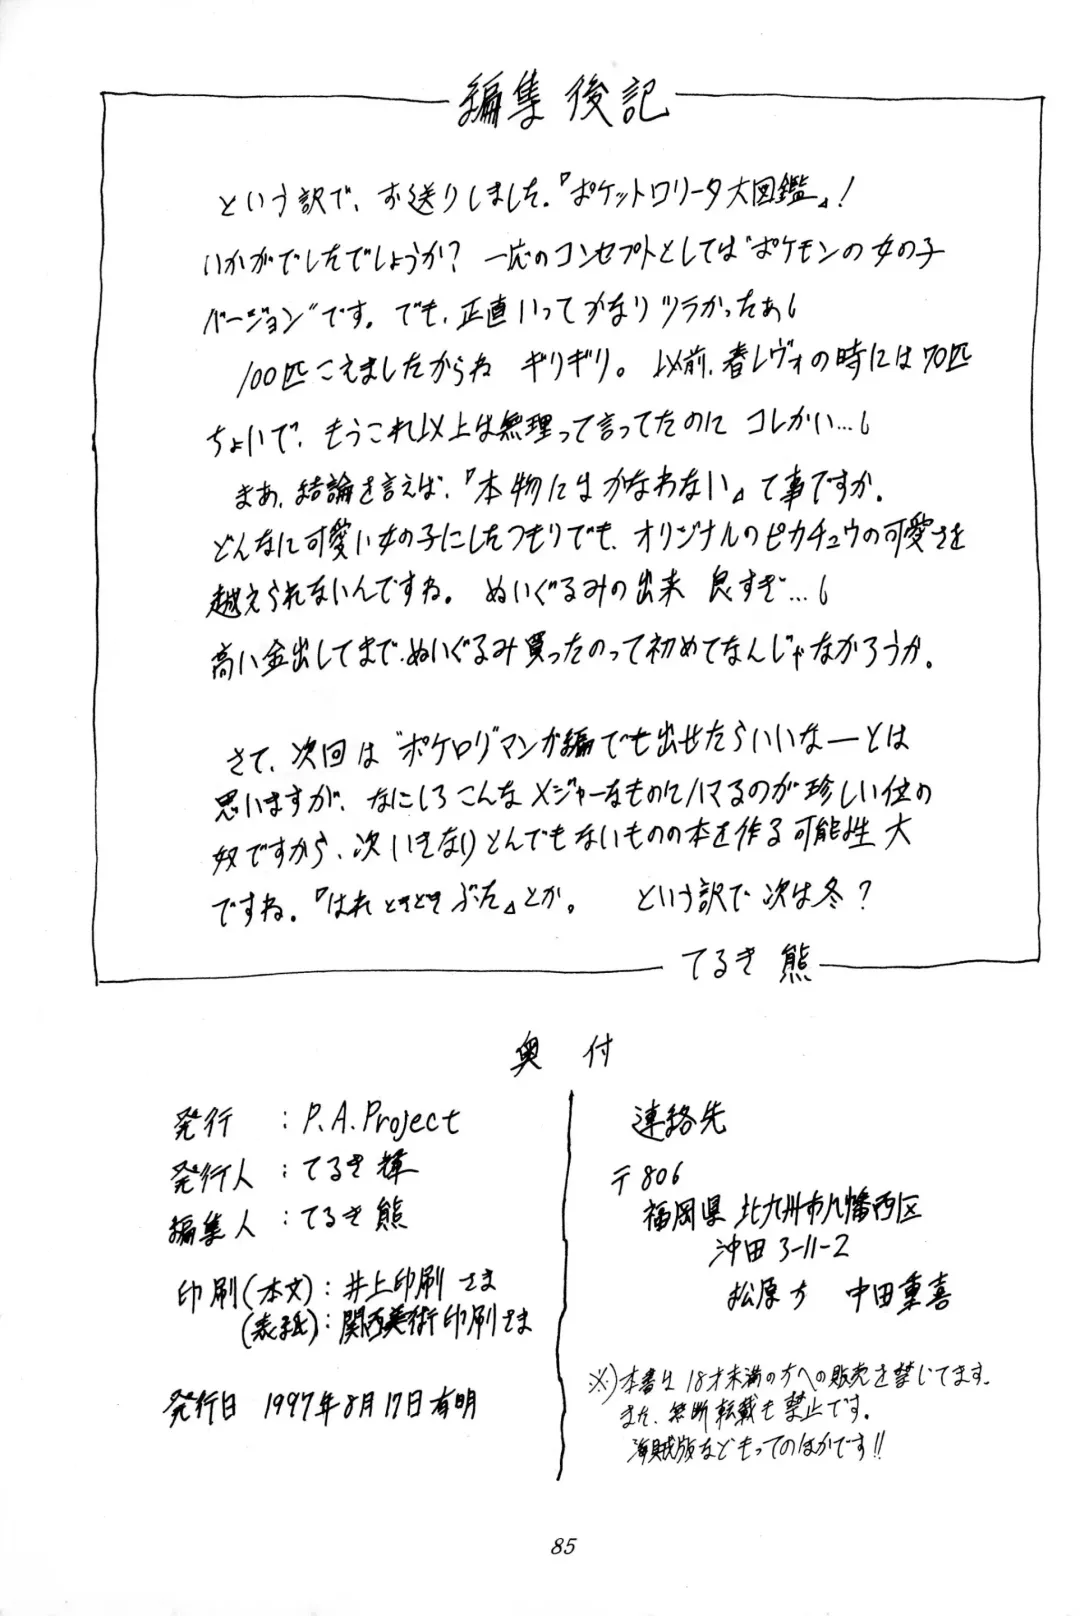 編集後記
という訳で、お送りしました。『ポケットロリータ大図鑑』!
いかがでしたでしょうか? 一応のコンセプトとしては"ポケモンの女の子
バージョン"です。でも、正直いってかなりツラかったぁ
100匹こえましたからね ギリギリ。以前、春レヴォの時には70匹
ちょいで、もうこれ以上は無理って言ってたのに コレかい…
まあ、結論を言えば、『本物にはかなわない』て事ですか。
どんなに可愛い女の子にしたつもりでも、オリジナルのピカチュウの可愛さを
越えられないんですね。 ぬいぐるみの出来 良すぎ…
高い金出してまで、ぬいぐるみ買ったのって初めてなんじゃなかろうか。
さて、次回は"ポケロリ"マンガ編でも出せたらいいなーとは
思いますが、なにしろこんなメジャーなものにハマるのが珍しい位の
奴ですから、次いきなりとんでもないものの本を作る可能性大
ですね。『はれときどきぶた』とか。 という訳で次は冬?
てるき熊
奥付
発行 : P.A.Project
発行人 : てるき輝
編集人 : てるき熊
印刷(本文) : 井上印刷さま
(表紙) : 関西美術印刷さま
発行日 1997年8月17日有明
連絡先
〒806
福岡県北九州市八幡西区
沖田3-11-2
松原方 中田重喜
※)本書は18才未満の方への販売を禁じてます。
また、無断転載も禁止です。
海賊版などもってのほかです!!
85